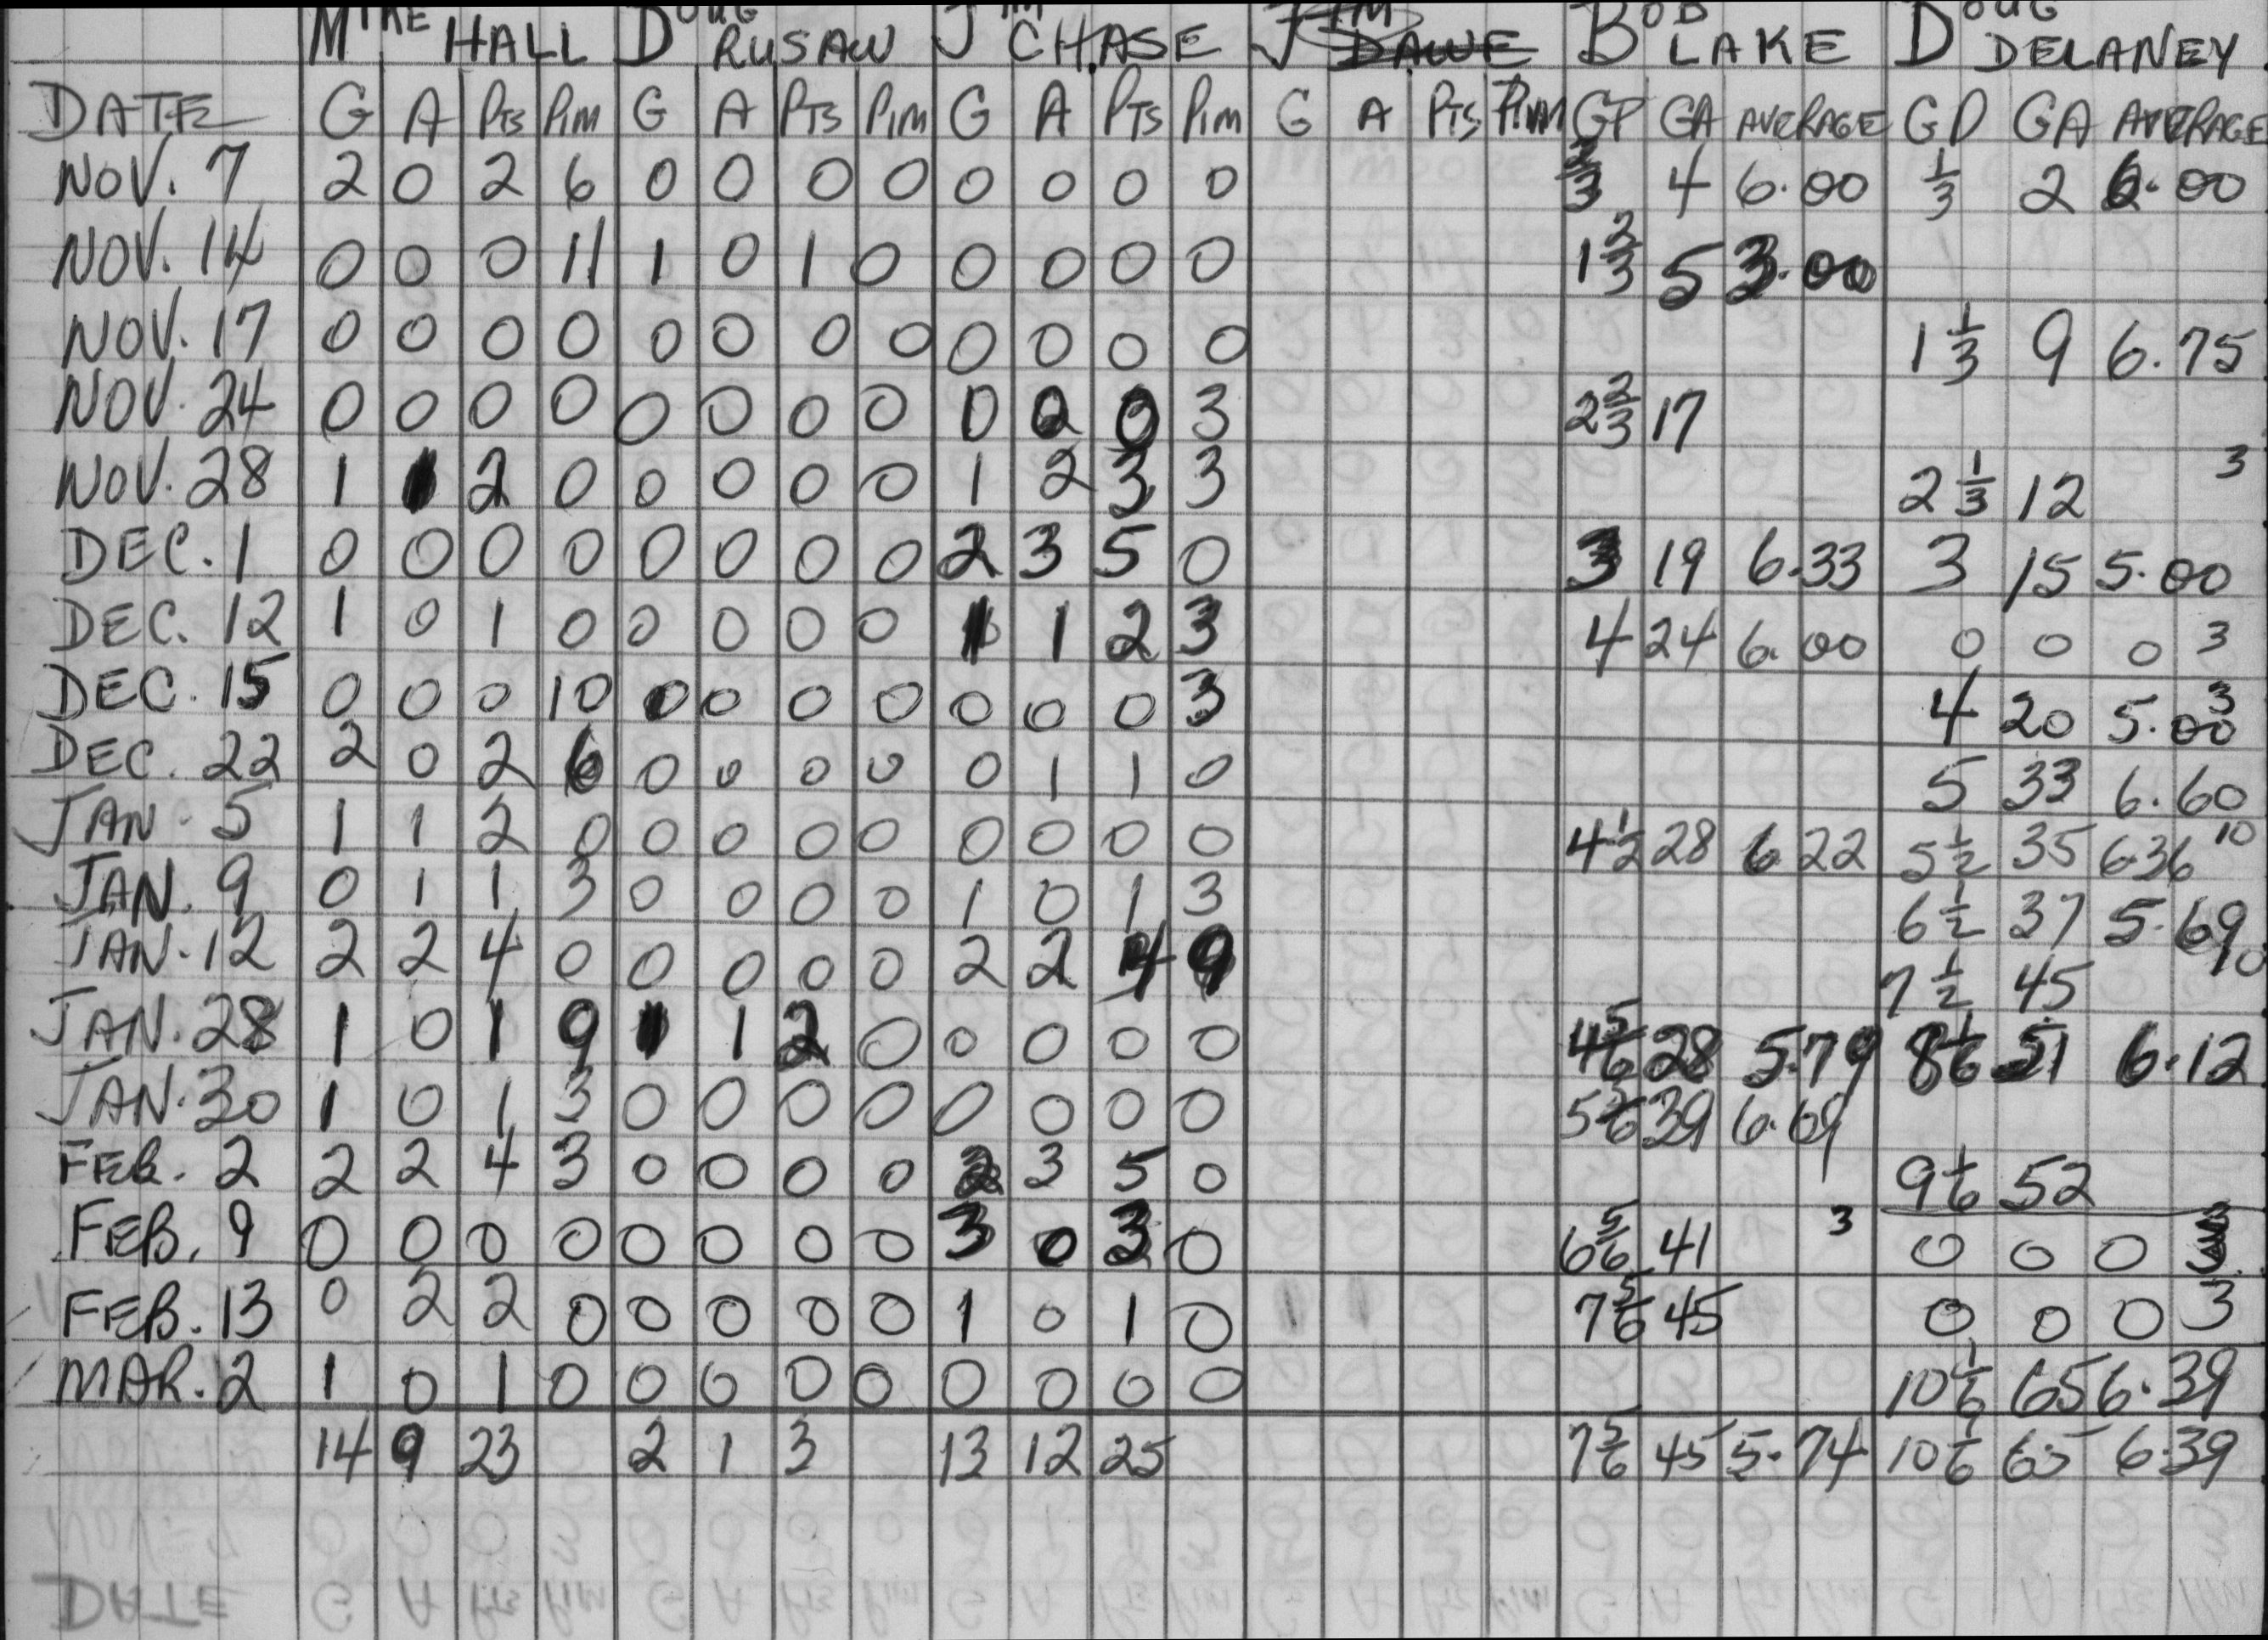 MIKE HALL DOUG RUSAW JIM CHASE JIM DAWE BOB LAKE DOUG DELANEY
DATE G A PTS PIM G A PTS PIM G A PTS PIM G A PTS PIM GP GA AVERAGE GP GA AVERAGE
NOV. 7 2 0 2 6 0 0 0 0 0 0 0 0 2/3 4 6.00 1/3 2 6.00
NOV. 14 0 0 0 11 1 0 1 0 0 0 0 0 1 2/3 5 3.00
NOV. 17 0 0 0 0 0 0 0 0 0 0 0 0 1 1/3 9 6.75
NOV. 24 0 0 0 0 0 0 0 0 0 0 0 3 2 2/3 17
NOV. 28 1 1 2 0 0 0 0 0 1 2 3 3 2 1/3 12 3
DEC. 1 0 0 0 0 0 0 0 0 2 3 5 0 3 19 6.33 3 15 5.00
DEC. 12 1 0 1 0 0 0 0 0 1 1 2 3 4 24 6.00 0 0 0 3
DEC. 15 0 0 0 10 0 0 0 0 0 0 0 3 4 20 5.00 3
DEC. 22 2 0 2 6 0 0 0 0 0 1 1 0 5 33 6.60
JAN. 5 1 1 2 0 0 0 0 0 0 0 0 0 4 1/2 28 6.22 5 1/2 35 6.36 10
JAN. 9 0 1 1 3 0 0 0 0 1 0 1 3 6 1/2 37 5.69
JAN. 12 2 2 4 0 0 0 0 0 2 2 4 9 7 1/2 45 10
JAN. 28 1 0 1 9 1 1 2 0 0 0 0 0 4 5/6 28 5.79 8 1/6 51 6.12
JAN. 30 1 0 1 3 0 0 0 0 0 0 0 0 5 5/6 39 6.69
FEB. 2 2 2 4 3 0 0 0 0 2 3 5 0 9 1/6 52
FEB. 9 0 0 0 0 0 0 0 0 3 0 3 0 6 5/6 41 3 0 0 0 3
FEB. 13 0 2 2 0 0 0 0 0 1 0 1 0 7 5/6 45 0 0 0 3
MAR. 2 1 0 1 0 0 0 0 0 0 0 0 0 10 1/6 65 6.39
14 9 23 2 1 3 13 12 25 7 5/6 45 5.74 10 1/6 65 6.39